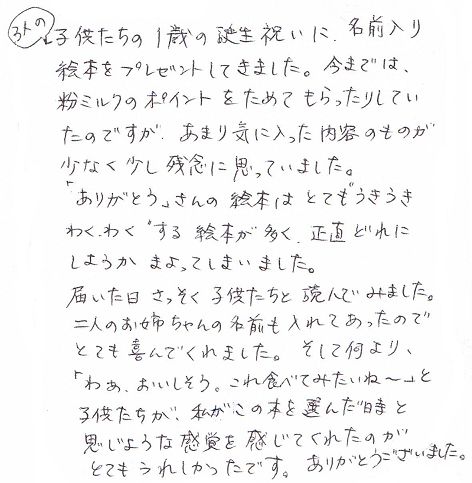 3人の子供たちの1歳の誕生祝いに、名前入り
絵本をプレゼントしてきました。今までは、
粉ミルクのポイントをためてもらったりしてい
たのですが、あまり気に入った内容のものが
少なく少し残念に思っていました。
「ありがとう」さんの絵本はとても"うきうき
わくわく"する絵本が多く、正直どれに
しようかまよってしまいました。
届いた日さっそく子供たちと読んでみました。
二人のお姉ちゃんの名前も入れてあったので
とても喜んでくれました。そして何より、
「わぁ、おいしそう。これ食べてみたいね〜」と
子供たちが、私がこの本を選んだ時と
思じような感覚を感じてくれたのが
とてもうれしかったです。ありがとうございました。